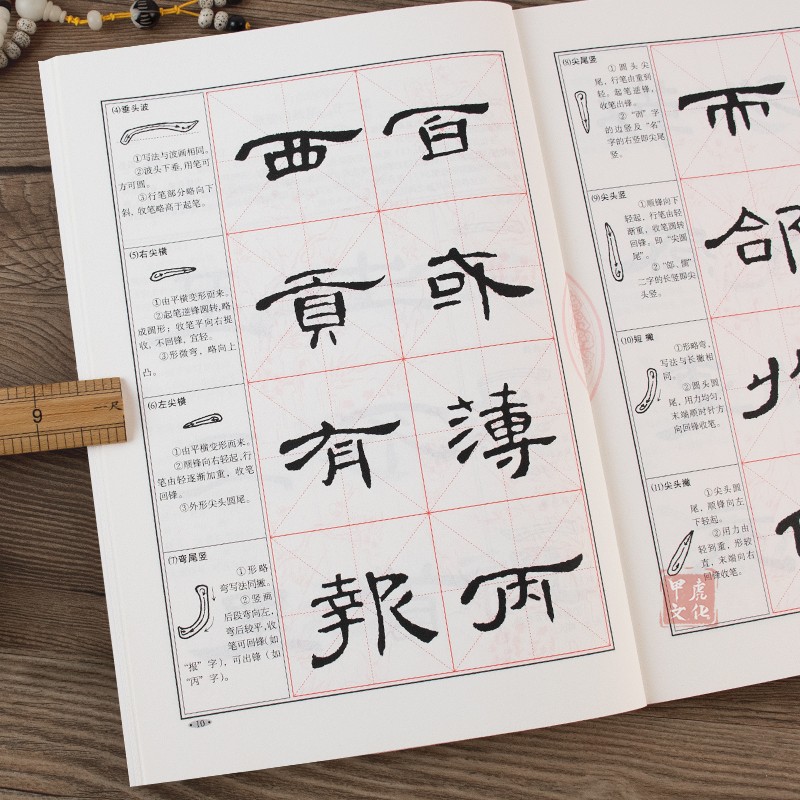 (4)垂头波
①写法与波画相同。
②波头下垂,用笔可
方可圆。
③行笔部分略向下
斜,收笔略高于起笔。
西
百
(5)右尖横
①由平横变形而来。
②起笔逆锋圆转,略
成圆形;收笔平向右提
收,不回锋,宜轻。
③形微弯,略向上
凸。
貢
或
(6)左尖横
①由平横变形而来。
②顺锋向右轻起,行
笔由轻逐渐加重,收笔
回锋。
③外形尖头圆尾。
有
薄
(7)弯尾竖
①形略
弯写法同撇。
②竖画
后段弯向左,
弯后较平,收
笔可回锋(如
“报”字),可出锋(如
“丙”字)。
報
丙
10
(8)尖尾竖
①圆头尖
尾,行笔由重到
轻。起笔逆锋,
收笔出锋。
②“而”字
的边竖及“名”
字的右竖即尖尾
竖。
而
(9)尖头竖
①顺锋向下
轻起,行笔由轻
渐重,收笔圆转
回锋。即“尖圆
尾”。
②“郃、儒”
二字的长竖即尖
头竖。
(10)短撇
①形略弯,
写法与长撇相
同。
②圆头圆
尾,用力均匀,
末端顺时针方
向回锋收笔。
(11)尖头撇
①尖头圆
尾,顺锋向左
下轻起。
②用力由
轻到重,形较
直,末端向右
回锋收笔。
甲虎
文化
9
一尺